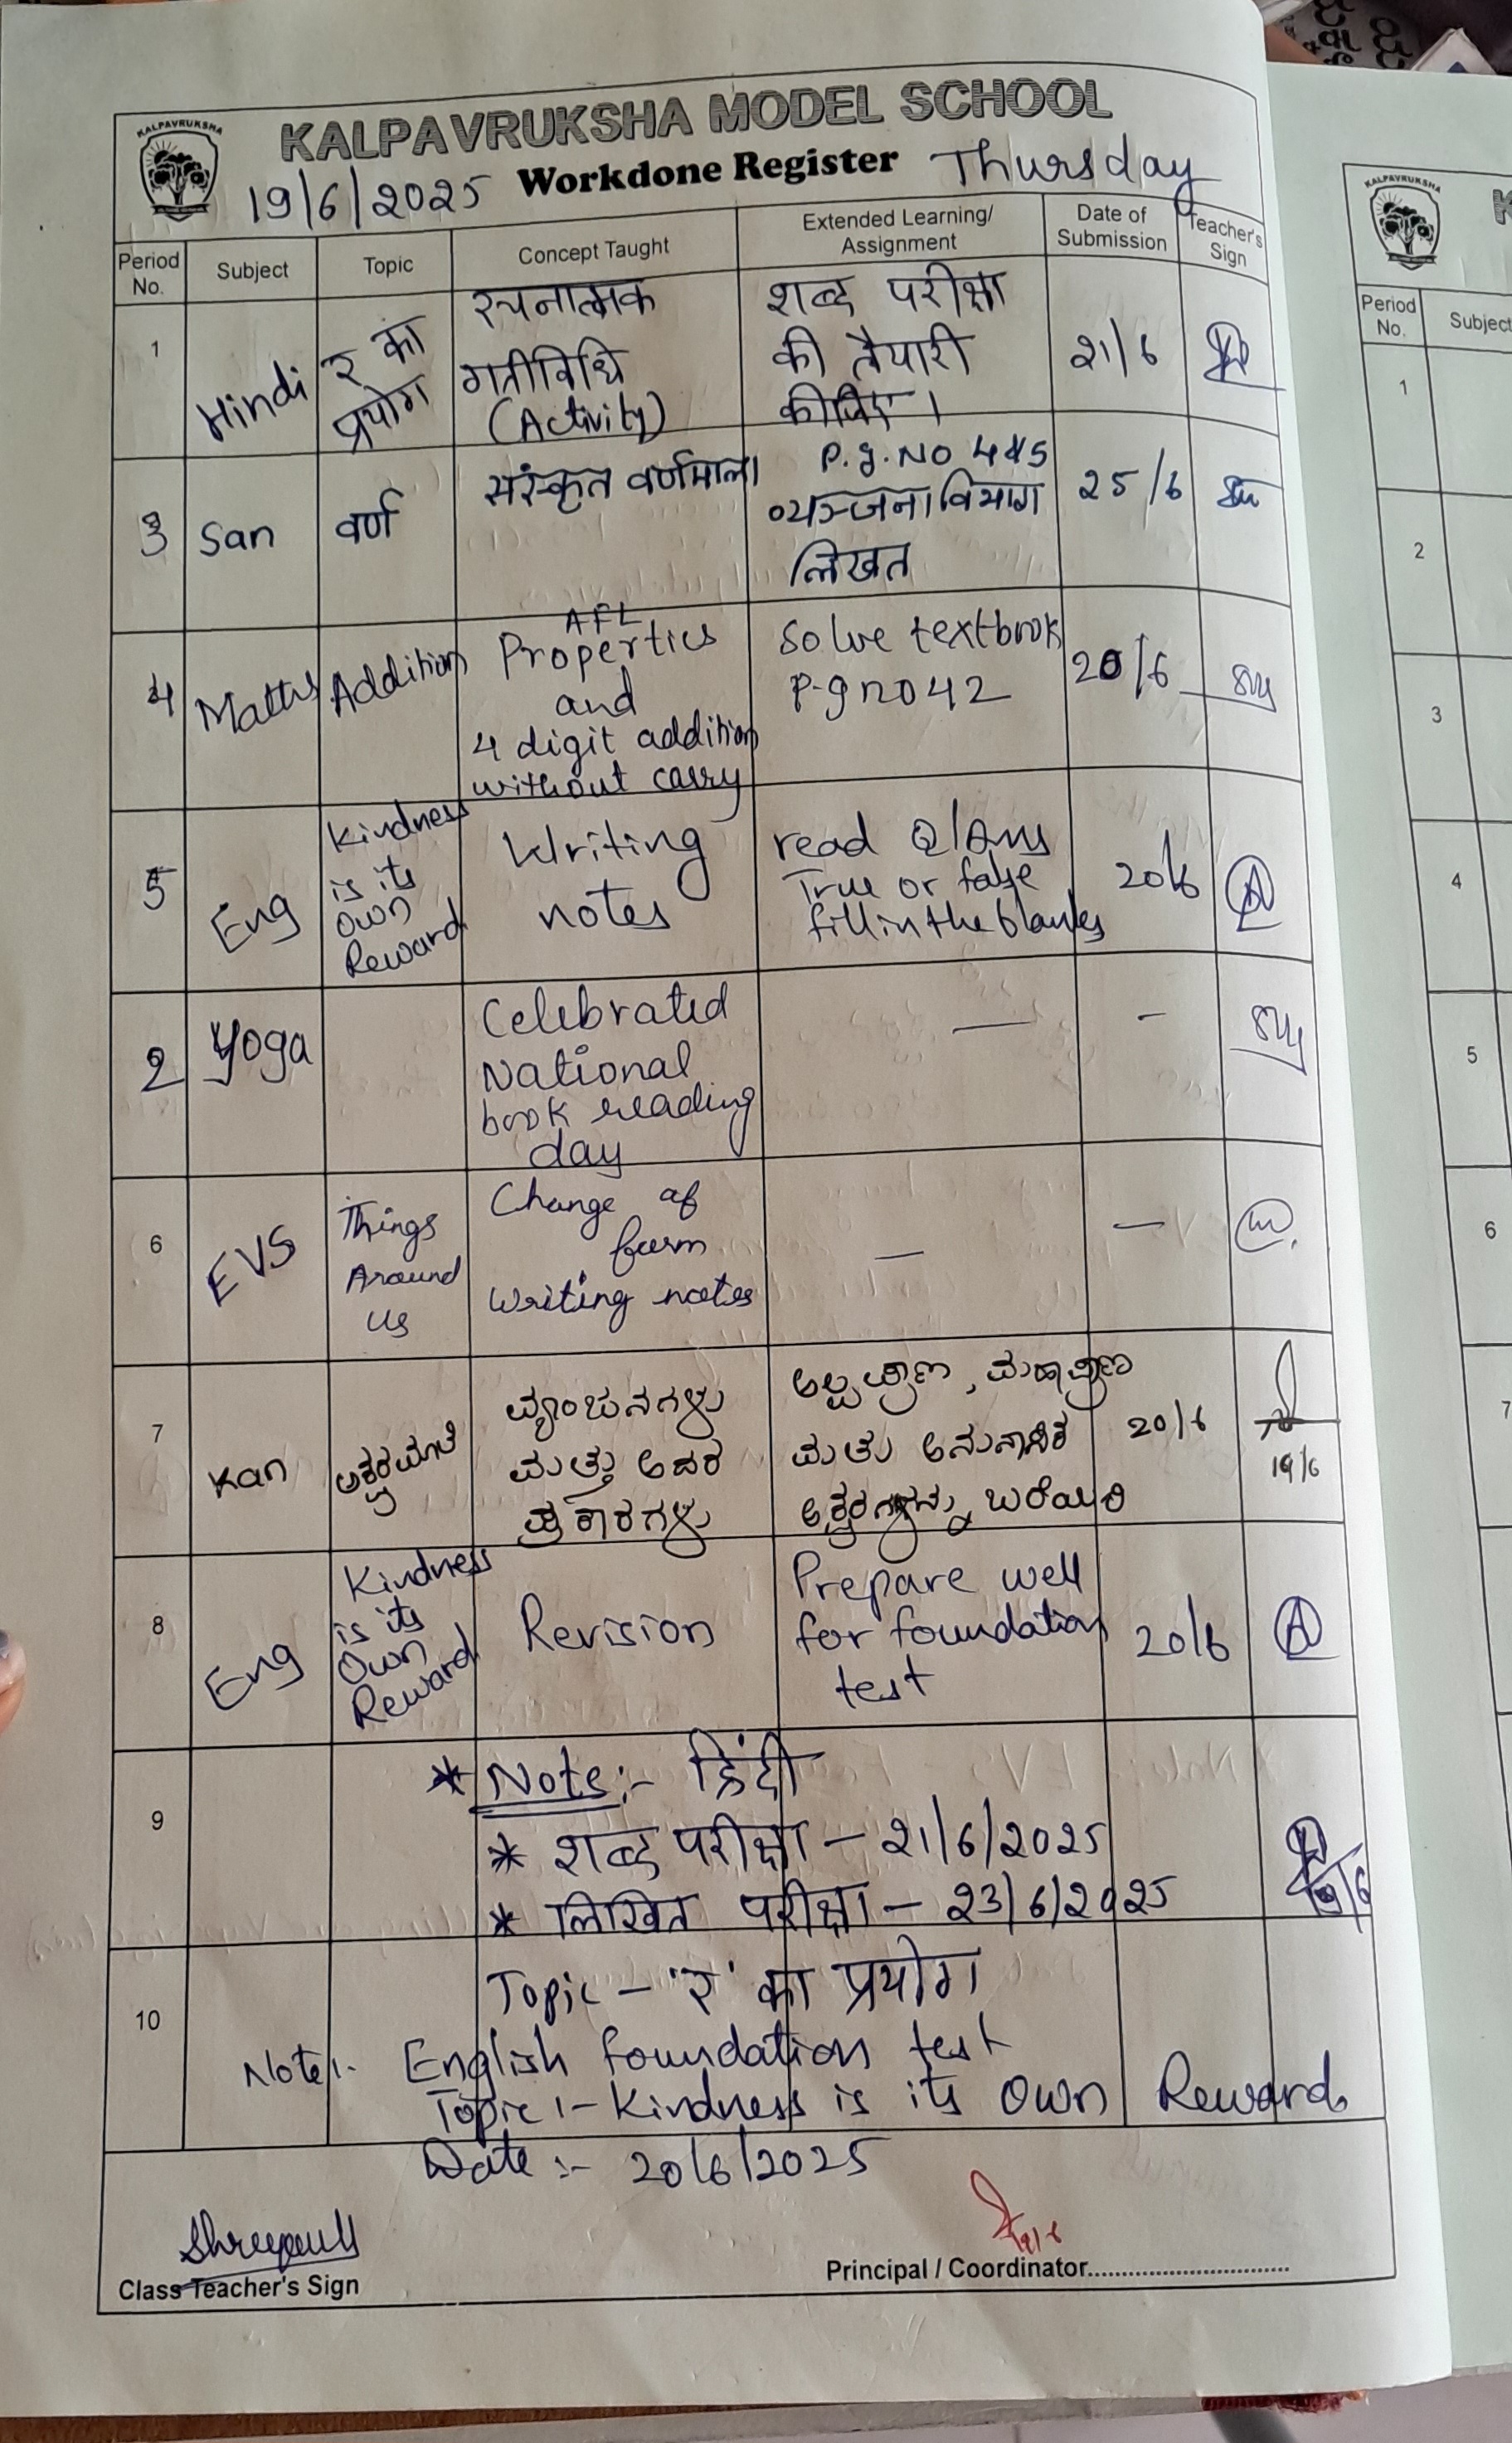 KALPAVRUKSHA
KALPAVRUKSHA MODEL SCHOOL
19/6/2025 Workdone Register Thursday
Period No. Subject Topic Concept Taught Extended Learning/ Assignment Date of Submission Teacher's Sign
1 Hindi र का प्रयोग रचनात्मक गतीविधि (Activity) शब्द परीक्षा की तैयारी कीजिए। 21/6
3 San वर्ण संस्कृत वर्णमाला P.g.No 4&5 व्यञ्जनाविभाग लिखत 25/6
4 Maths Addition AFL Properties and 4 digit addition without carry Solve textbook P-g no 42 20/6
5 Eng Kindness is its Own Reward Writing notes read Q/Ans True or false fill in the blanks 20/6
2 Yoga Celebrated National book reading day — -
6 EVS Things Around Us Change of form Writing notes — —
7 Kan ಅಕ್ಷರಮಾಲೆ ವ್ಯಂಜನಗಳು ಮತ್ತು ಅದರ ಪ್ರಕಾರಗಳು ಅಲ್ಪಪ್ರಾಣ, ಮಹಾಪ್ರಾಣ ಮತ್ತು ಅನುನಾಸಿಕ ಅಕ್ಷರಗಳನ್ನು ಬರೆಯಿರಿ 20/6 19/6
8 Eng Kindness is its Own Reward Revision Prepare well for foundation test 20/6
9
* Note:- हिंदी
* शब्द परीक्षा – 21/6/2025
* लिखित परीक्षा – 23/6/2025
10
Topic – 'र' का प्रयोग
Note:- English foundation test
Topic:- Kindness is its Own Reward
Date:- 20/6/2025
Class Teacher's Sign
Principal / Coordinator
KALPAVRUKSHA
K
Period No. Subject
1
2
3
4
5
6
7